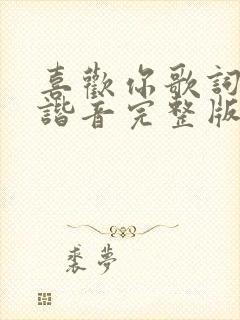 喜歡你歌詞
諧音完整版
裘夢